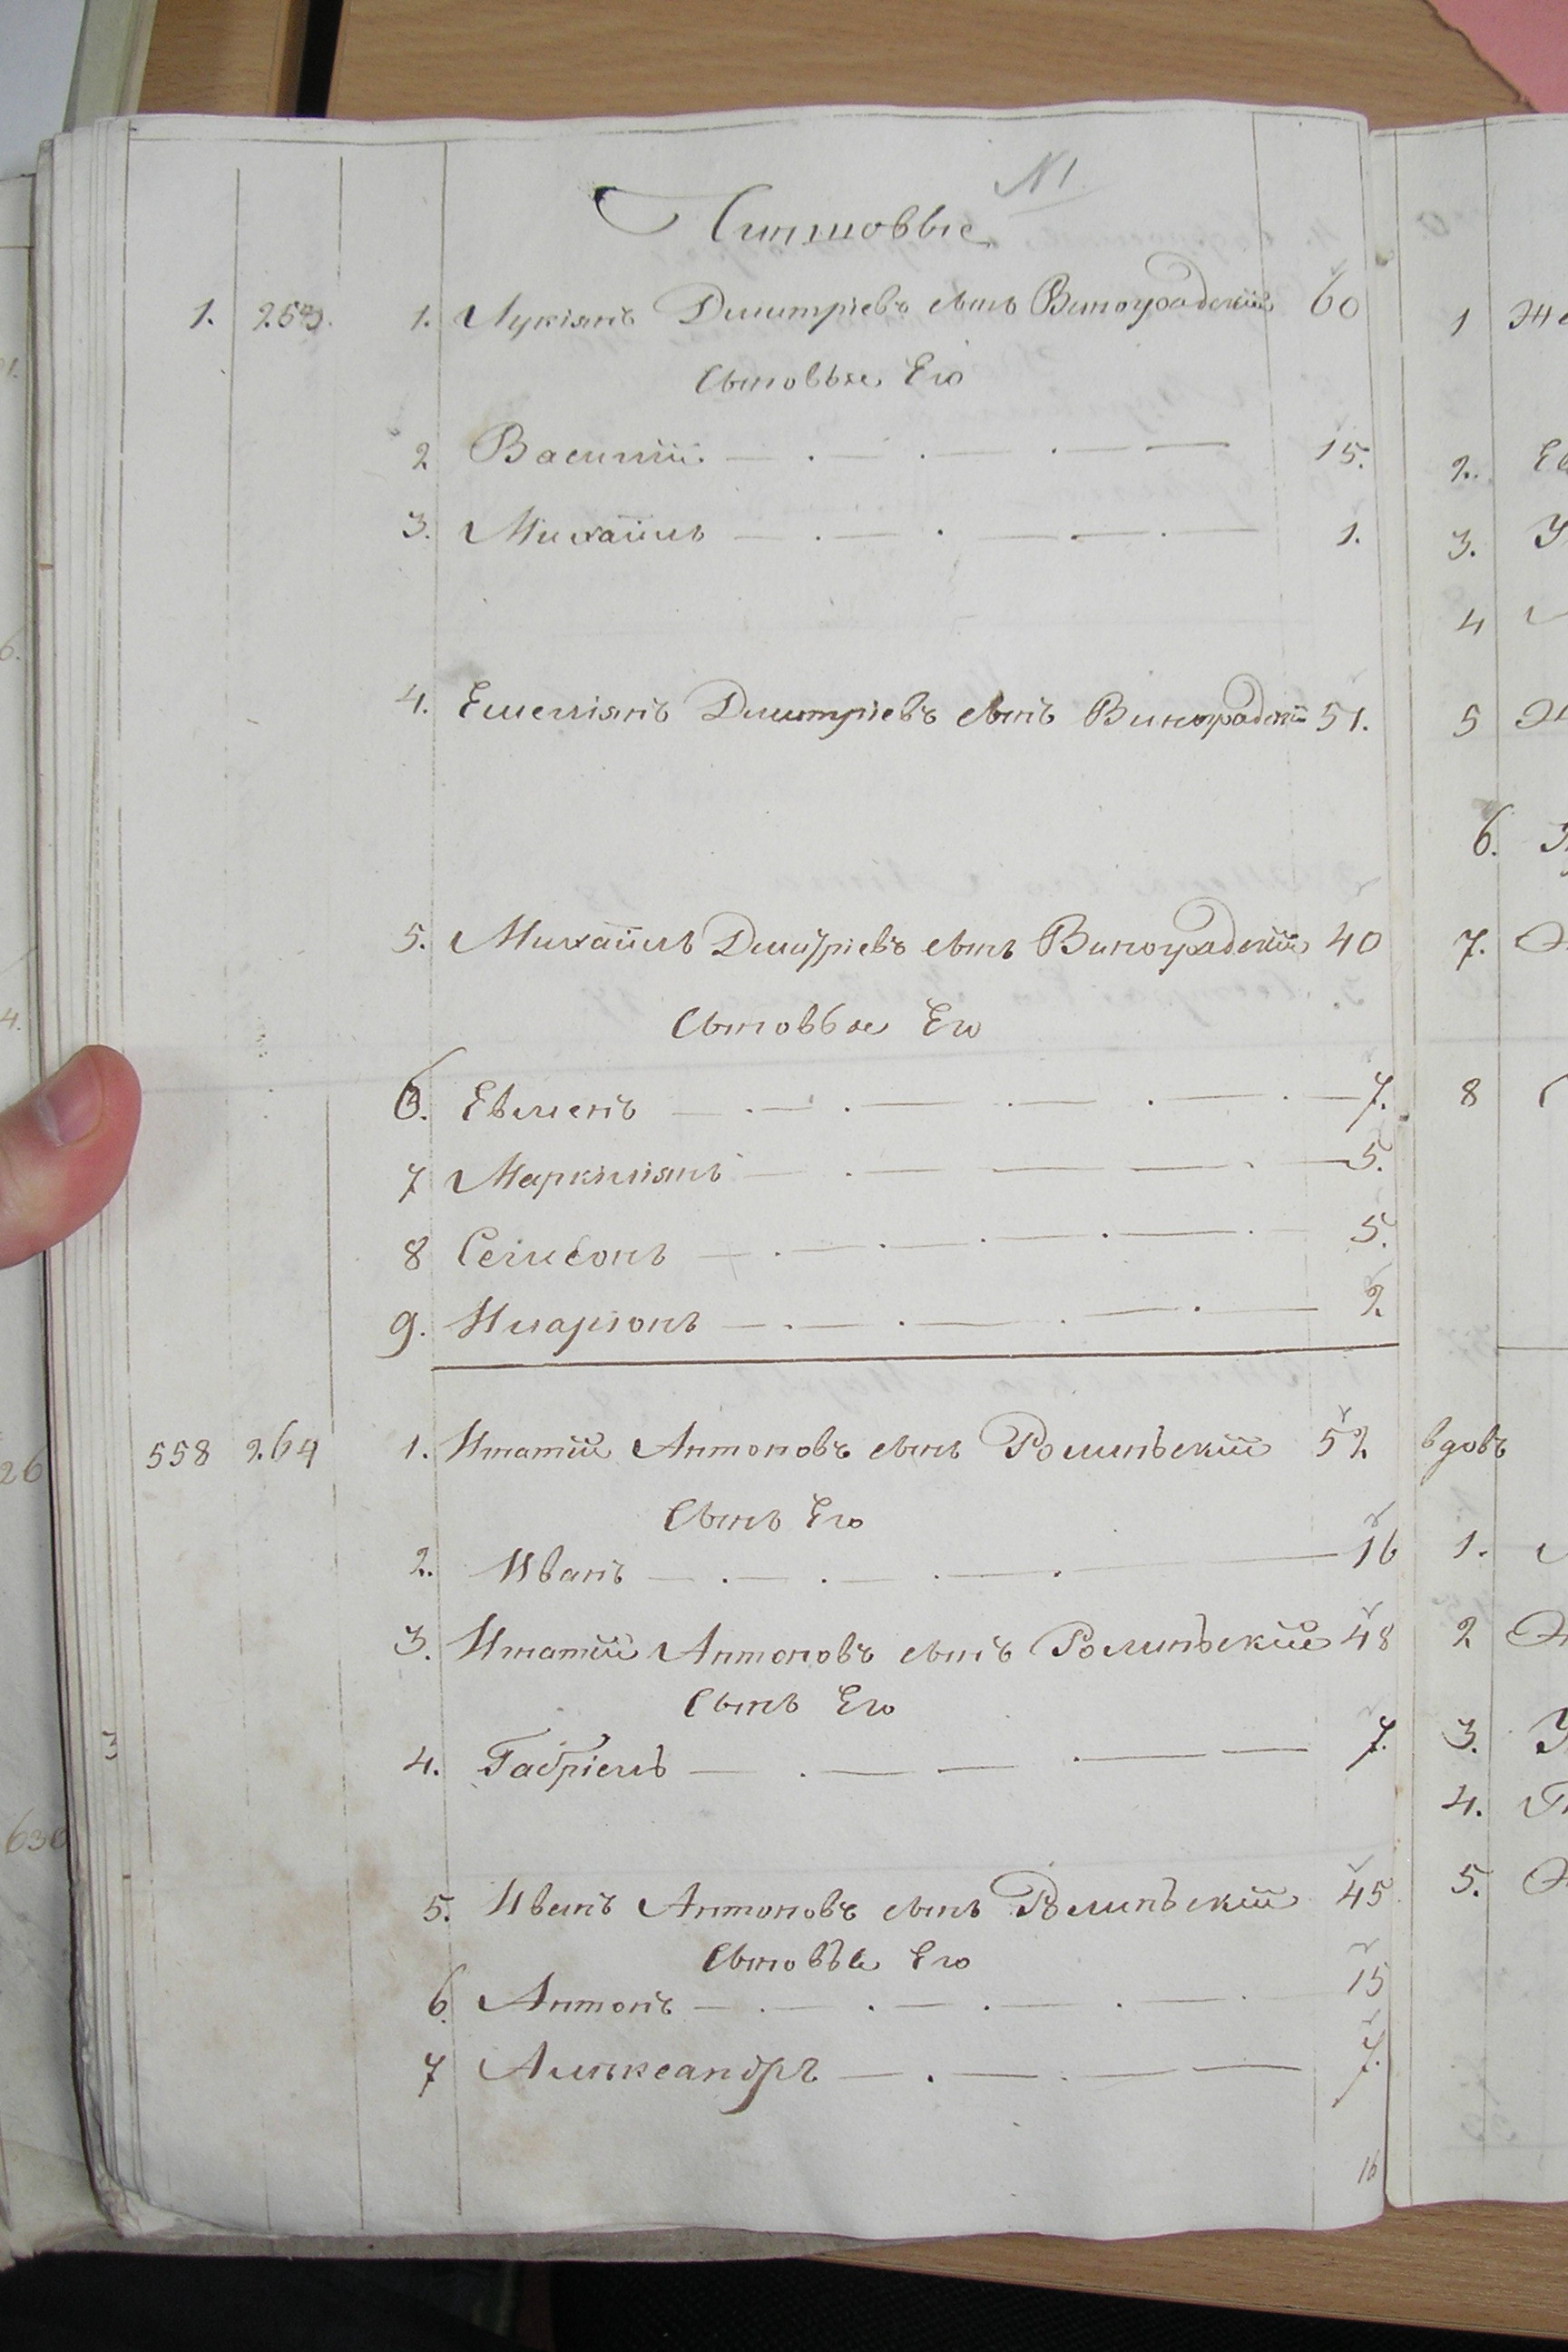 N 1
Чиншовые
1. 263. 1. Лукіянъ Дмитріевъ сынъ Виноградскій 60
Сыновья Его
2 Василій 15.
3. Михаилъ 1.
4. Емеліянъ Дмитріевъ сынъ Виноградскій 51.
5. Михаилъ Дмитріевъ сынъ Виноградскій 40
Сыновья Его
6. Евменъ 7.
7 Маркіліянъ 5.
8 Семионъ 5.
9. Иларіонъ 2
558 264 1. Игнатій Антоновъ сынъ Роминъскій 52
Сынъ Его
2. Иванъ 16
3. Игнатій Антоновъ сынъ Роминъскій 48
Сынъ Его
4. Габріель 7.
5. Иванъ Антоновъ сынъ Роминъскій 45
Сыновья Его
6. Антонъ 15
7 Алѣксандръ 7.
16
1 Же
2.
3. У
4
5
6.
7.
8
вдовъ
1.
2
3. У
4.
5.
26
630